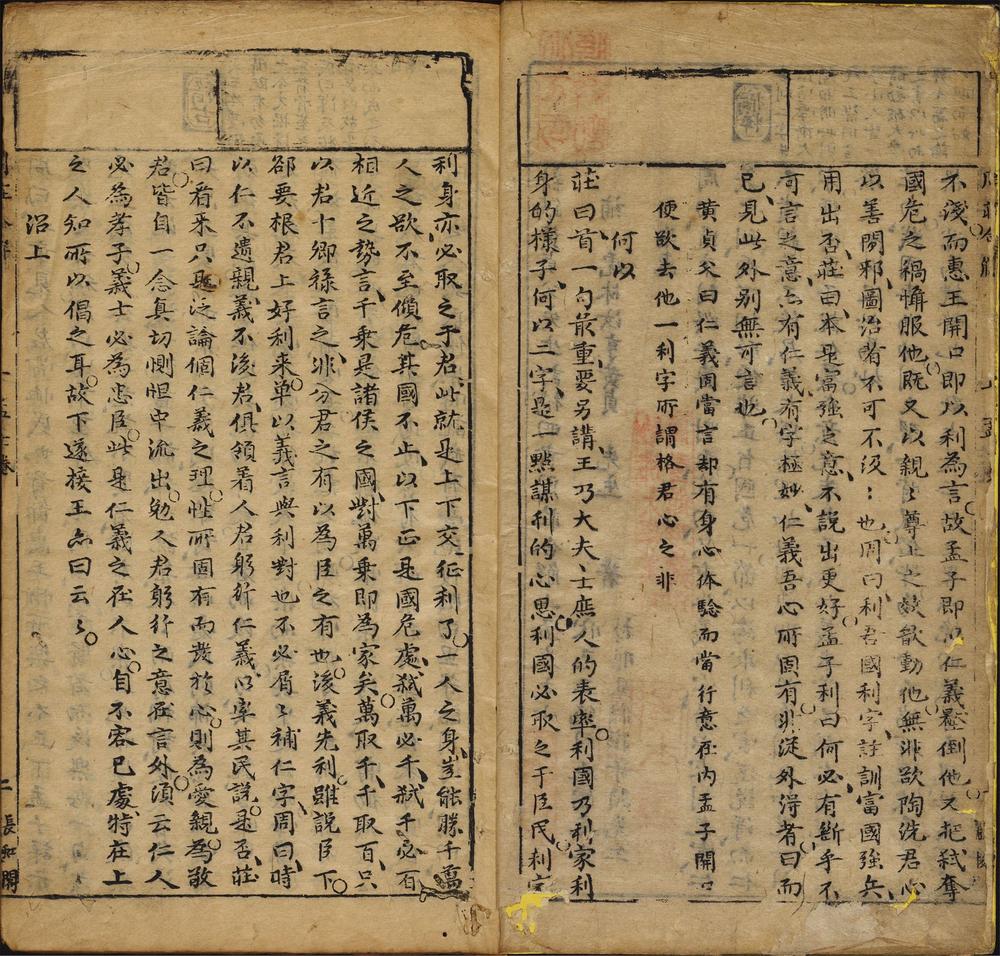 不淺而惠王開口即以利為言故孟子即以仁義壓倒他又把弒奪
國危之禍惰服他既又以親〻尊上之效歆動他無非欲陶洗君心
以善閉邪圖治者不可不汲〻也周曰利吾國利字註訓富國強兵
用出否莊曰本是富強之意不說出更好孟子利曰何必有斬乎不
可言之意亦有仁義有字極妙仁義吾心所固有非從外得者曰而
已見此外別無可言也
黃貞父曰仁義固當言却有身心体驗而當行意在內孟子開口
便欲去他一利字所謂格君心之非
何以
莊曰首一句最重要另講王乃大夫士庶人的表率利國乃利家利
身的樣子何以二字是一點謀利的心思利國必取之于臣民利家
利身亦必取之于君此就是上下交征利了一人之身豈能勝千萬
人之欲不至傾危其國不止以下正是國危處弒萬必千弒千必百
相近之勢言千乘是諸侯之國對萬乘即為家矣萬取千千取百只
以君十卿祿言之非分君之有以為臣之有也後義先利雖說臣下
卻要根君上好利來單以義言與利對也不必屑〻補仁字周曰時
以仁不遺親義不後君俱領着人君躬行仁義以率其民說是否莊
曰看來只是泛論個仁義之理性所固有而發於心則為愛親為敬
君皆自一念真切惻怛中流出勉人君躬行之意在言外須云仁人
必為孝子義士必為忠臣此是仁義之在人心自不容已處特在上
之人知所以倡之耳故下遂接王亦曰云〻
沼上